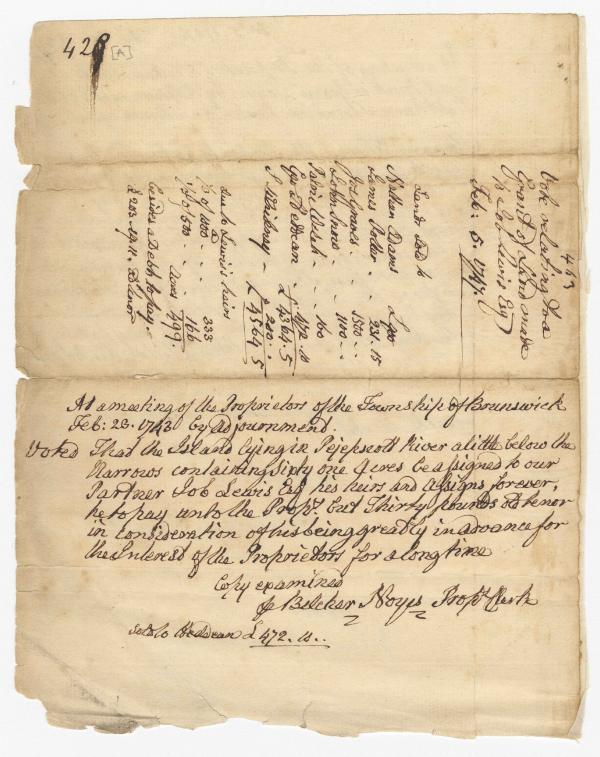 428
[A]
453
Vote relating to a
Grant of Land made
to Job Lewis Esq
Feb: 5. 1747.
Land Sold to
Nathan Adams £400
James Potter 231. 15
Graves 1500
John Snow 1100
Patric Welsh 160
Geo Headean 472. 11
£ 4364. 5
S Whitney 200
£ 4564. 5
due to Lewis's heirs
⅓ of 1000 333
⅓ of 500 166
Acres 499.
besides a Debt to pay
£ 203. 19. 11. Old Tenor
At a meeting of the Proprietors of the Township of Brunswick
Feb: 23. 1743 by adjournment.
Voted That the Island lying in Pejepscott River a little below the
Narrows containing Sixty one Acres be assigned to our
Partner Job Lewis Esq his heirs and Assigns forever,
he to pay unto the Prop.rs but Thirty pounds old tenor
in consideration of his being greatly in advance for
the Interest of the Proprietors for a long time
Copy examined
p Belcher Noyes Prop.rs Clerk
Sold to Headean £ 472. 11..